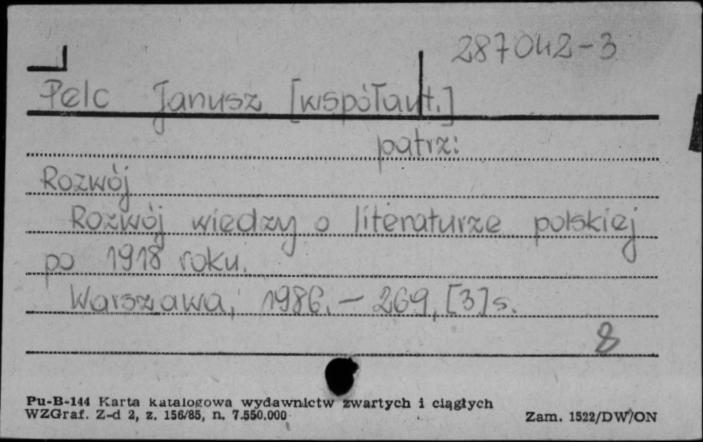 287042-3
Pelc Janusz [współaut.]
patrz:
Rozwój
Rozwój wiedzy o literaturze polskiej
po 1918 roku.
Warszawa, 1986. – 269, [3] s.
8
Pu-B-144 Karta katalogowa wydawnictw zwartych i ciągłych
WZGraf. Z-d 2, z. 156/85, n. 7.550.000
Zam. 1522/DW/ON